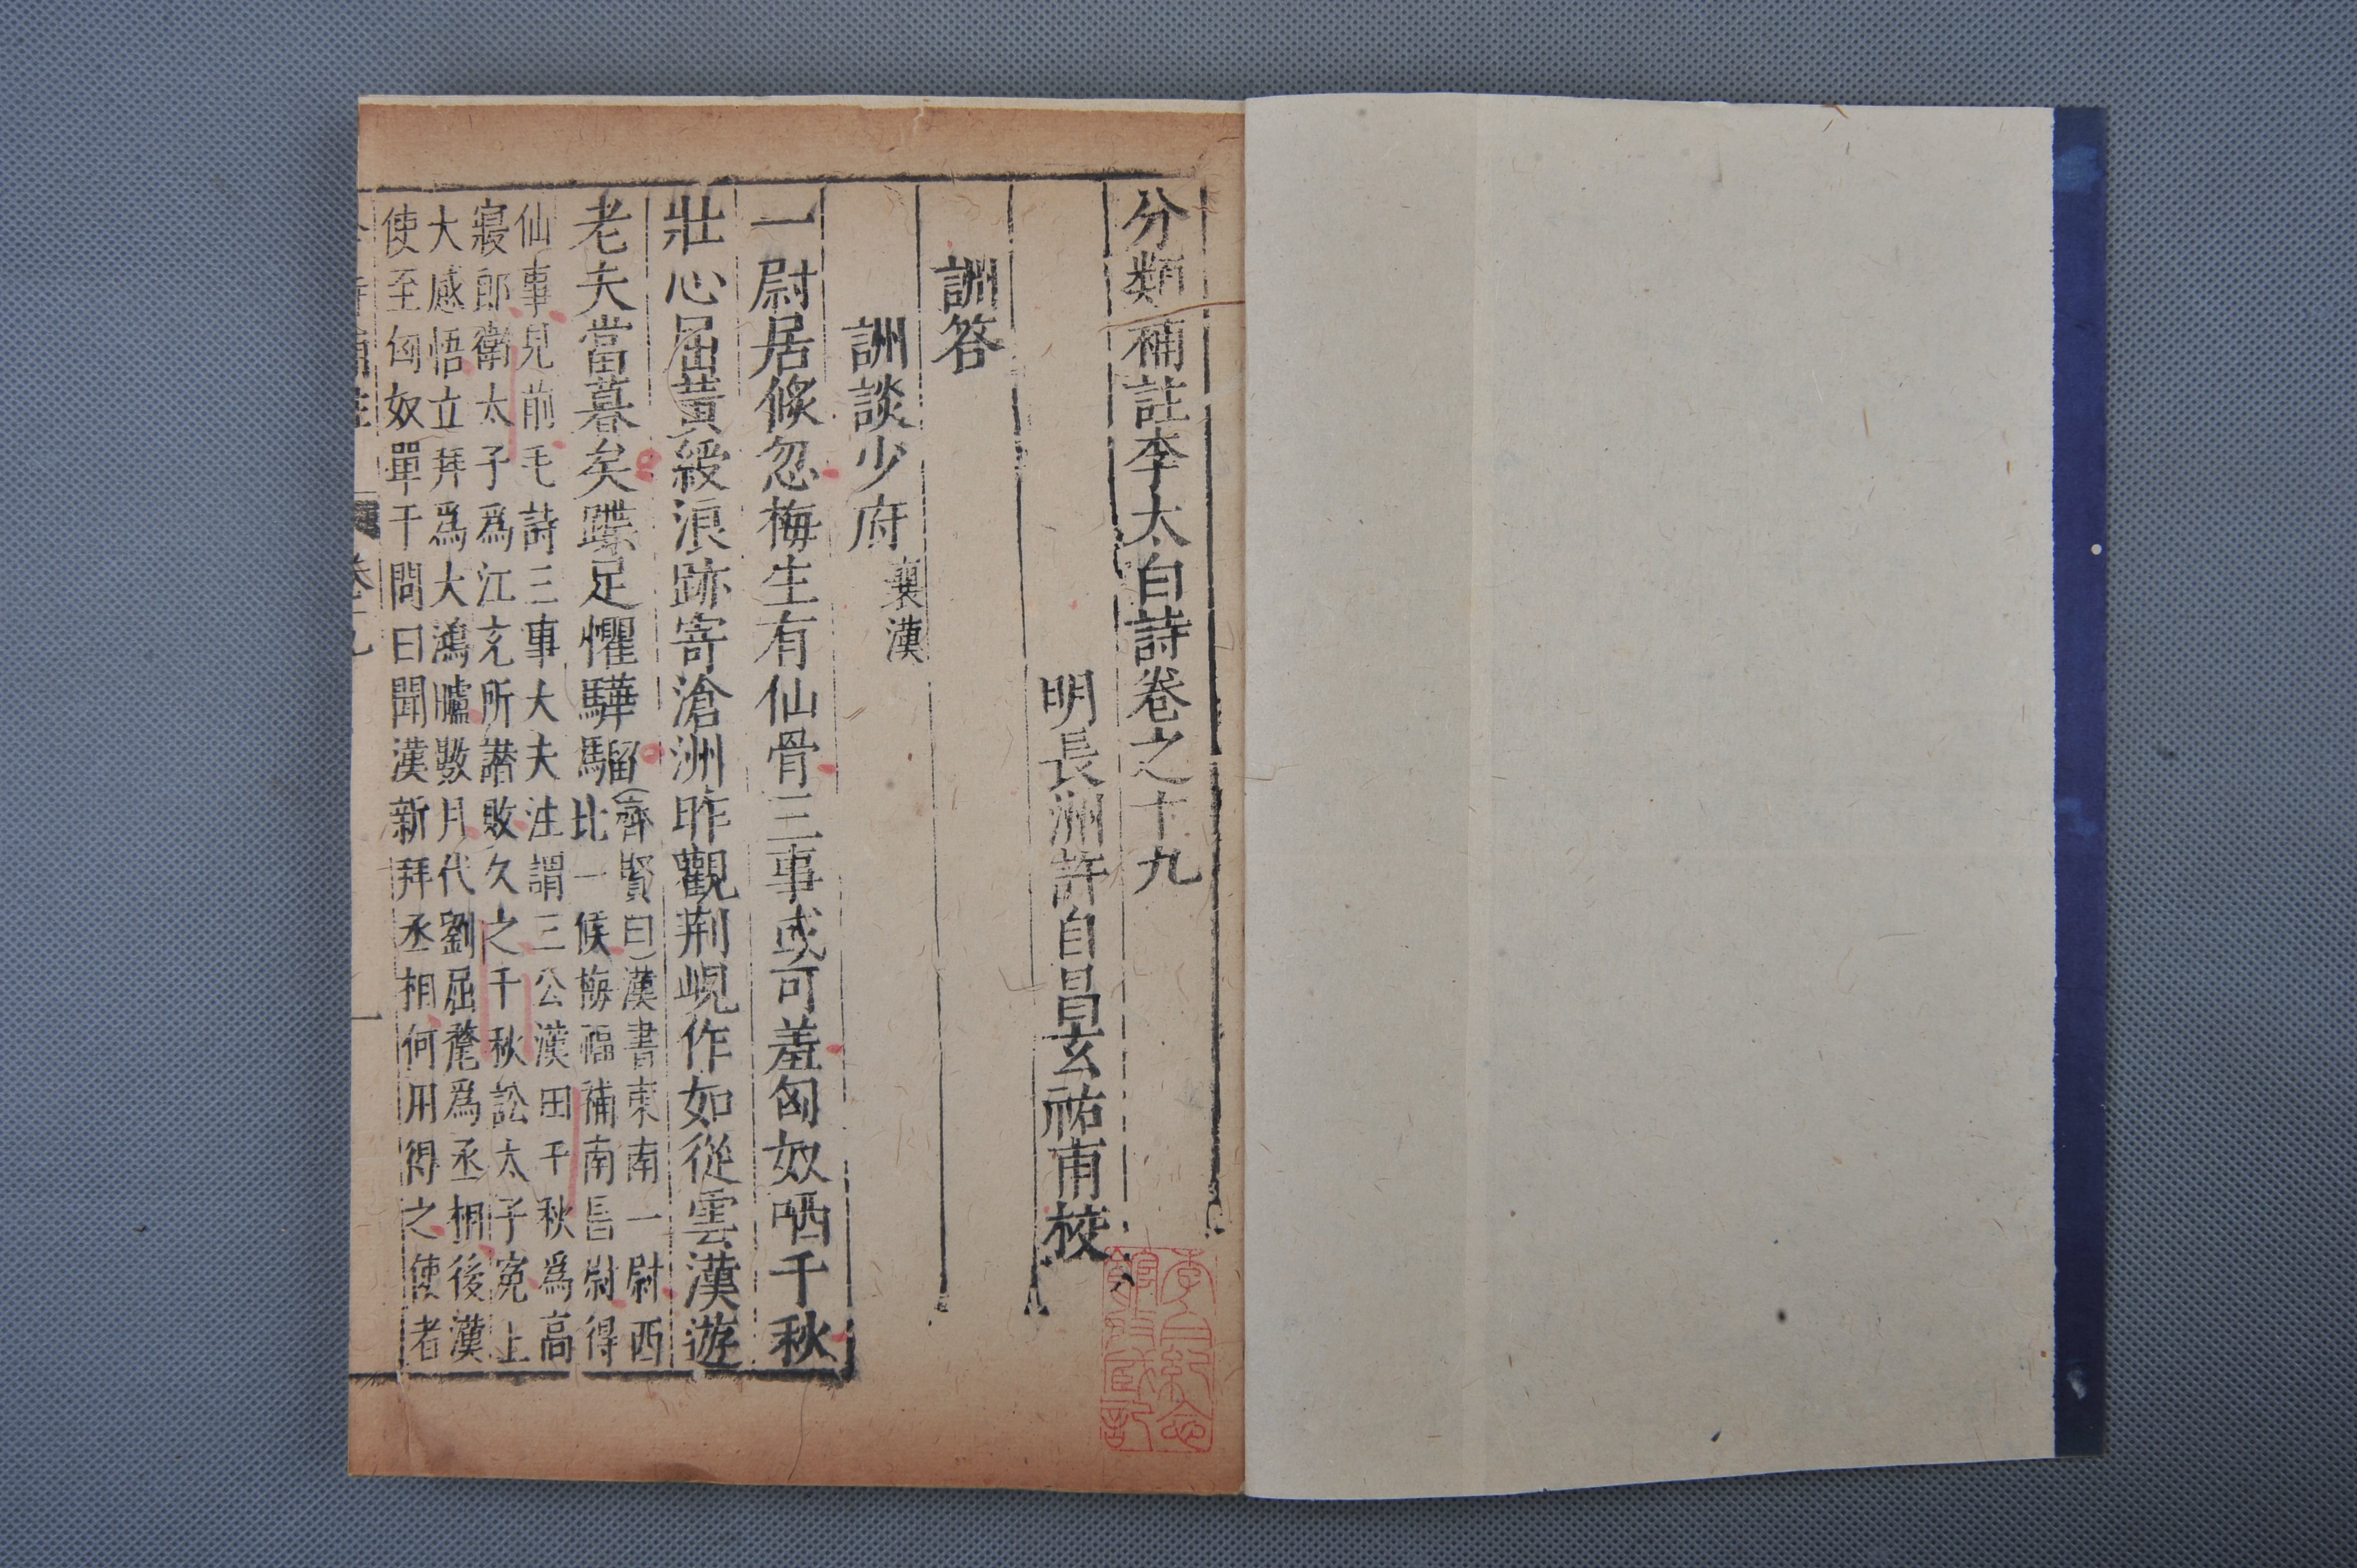 分類補註李太白詩卷之十九
明長洲許自昌玄祐甫校
詶答
詶談少府襄漢
一尉居倏忽梅生有仙骨三事或可羞匈奴哂千秋
壯心屈黃綬浪跡寄滄洲昨觀荆峴作如從雲漢遊
老夫當暮矣蹀足懼驊騮
齊賢曰漢書東南一尉西
比一候梅福補南昌尉得
仙事見前毛詩三事大夫注謂三公漢田千秋爲高
寢郎衛太子爲江充所譖敗久之千秋訟太子寃上
大感悟立拜爲大鴻臚數月代劉屈氂爲丞相後漢
使至匈奴單于問曰聞漢新拜丞相何用得之使者
李白紀念館所藏記